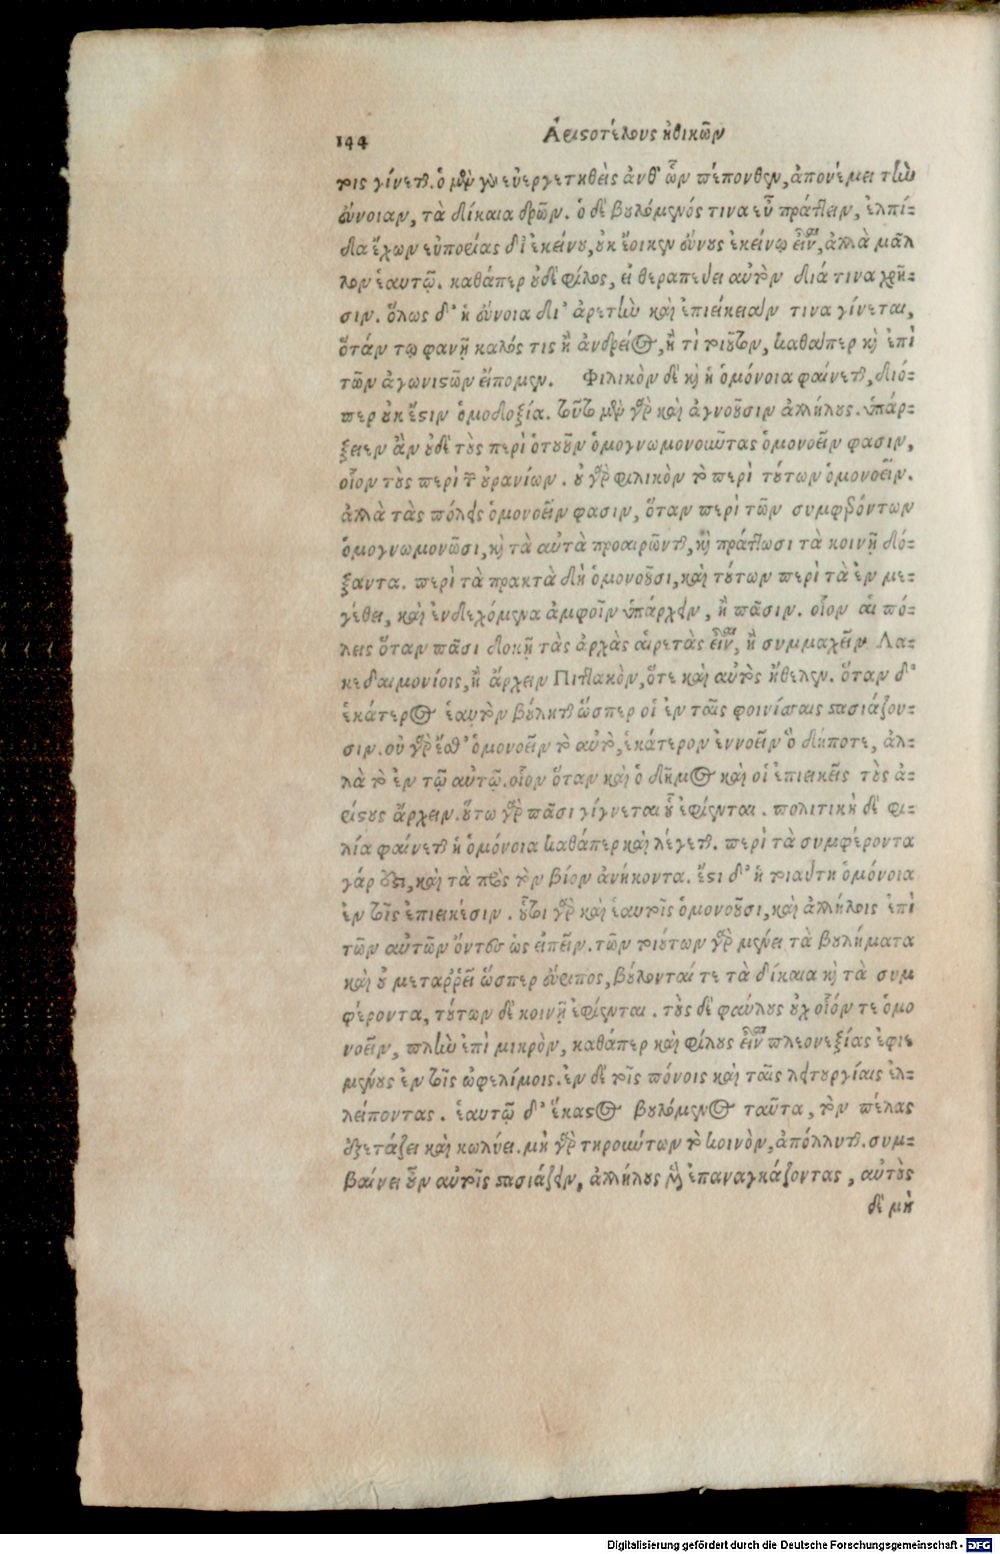 144 Ἀριστοτέλους ἠθικῶν
τοις γίνεται. ὁ μὲν γὰρ εὐεργετηθεὶς ἀνθ' ὧν πέπονθεν, ἀπονέμει τὴν
εὔνοιαν, τὰ δίκαια δρῶν. ὁ δὲ βουλόμενός τινα εὖ πράττειν, ἐλπί-
δα ἔχων εὐπορίας δι' ἐκείνου, οὐκ ἔοικεν εὔνους ἐκείνῳ εἶναι, ἀλλὰ μᾶλ
λον ἑαυτῷ. καθάπερ οὐδὲ φίλος, εἰ θεραπεύει αὐτὸν διά τινα χρῆ-
σιν. ὅλως δ' ἡ εὔνοια δι' ἀρετὴν καὶ ἐπιείκειάν τινα γίνεται,
ὅτάν τῳ φανῇ καλός τις ἢ ἀνδρεῖος, ἤ τι τοιοῦτον, καθάπερ καὶ ἐπὶ
τῶν ἀγωνιστῶν εἴπομεν. Φιλικὸν δὲ καὶ ἡ ὁμόνοια φαίνεται, διό-
περ οὐκ ἔστιν ὁμοδοξία. τοῦτο μὲν γὰρ καὶ ἀγνοοῦσιν ἀλλήλους. ὑπάρ-
ξειεν ἂν οὐδὲ τοὺς περὶ ὁτουοῦν ὁμογνωμονοῦντας ὁμονοεῖν φασιν,
οἷον τοὺς περὶ τῶν οὐρανίων. οὐ γὰρ φιλικὸν τὸ περὶ τούτων ὁμονοεῖν.
ἀλλὰ τὰς πόλεις ὁμονοεῖν φασιν, ὅταν περὶ τῶν συμφερόντων
ὁμογνωμονῶσι, καὶ τὰ αὐτὰ προαιρῶνται, καὶ πράττωσι τὰ κοινῇ δό-
ξαντα. περὶ τὰ πρακτὰ δὴ ὁμονοοῦσι, καὶ τούτων περὶ τὰ ἐν με-
γέθει, καὶ ἐνδεχόμενα ἀμφοῖν ὑπάρχειν, ἢ πᾶσιν. οἷον αἱ πό-
λεις ὅταν πᾶσι δοκῇ τὰς ἀρχὰς αἱρετὰς εἶναι, ἢ συμμαχεῖν Λα-
κεδαιμονίοις, ἢ ἄρχειν Πιττακὸν, ὅτε καὶ αὐτὸς ἤθελεν. ὅταν δ'
ἑκάτερος ἑαυτὸν βούληται ὥσπερ οἱ ἐν ταῖς φοινίσσαις στασιάζου-
σιν. οὐ γὰρ ἔσθ' ὁμονοεῖν τὸ αὐτὸ, ἑκάτερον ἐννοεῖν ὃ δήποτε, ἀλ-
λὰ τὸ ἐν τῷ αὐτῷ. οἷον ὅταν καὶ ὁ δῆμος καὶ οἱ ἐπιεικεῖς τοὺς ἀ-
ρίστους ἄρχειν. οὕτω γὰρ πᾶσι γίγνεται οὗ ἐφίενται. πολιτικὴ δὲ φι-
λία φαίνεται ἡ ὁμόνοια καθάπερ καὶ λέγεται. περὶ τὰ συμφέροντα
γάρ ἐστι, καὶ τὰ πρὸς τὸν βίον ἀνήκοντα. ἔστι δ' ἡ τοιαύτη ὁμόνοια
ἐν τοῖς ἐπιεικέσιν. οὗτοι γὰρ καὶ ἑαυτοῖς ὁμονοοῦσι, καὶ ἀλλήλοις ἐπὶ
τῶν αὐτῶν ὄντες ὡς εἰπεῖν. τῶν τοιούτων γὰρ μένει τὰ βουλήματα
καὶ οὐ μεταῤῥεῖ ὥσπερ εὔριπος, βούλονταί τε τὰ δίκαια καὶ τὰ συμ
φέροντα, τούτων δὲ κοινῇ ἐφίενται. τοὺς δὲ φαύλους οὐχ οἷόν τε ὁμο
νοεῖν, πλὴν ἐπὶ μικρὸν, καθάπερ καὶ φίλους εἶναι πλεονεξίας ἐφιε
μένους ἐν τοῖς ὠφελίμοις. ἐν δὲ τοῖς πόνοις καὶ ταῖς λειτουργίαις ἐλ-
λείποντας. ἑαυτῷ δ' ἕκαστος βουλόμενος ταῦτα, τὸν πέλας
ἐξετάζει καὶ κωλύει. μὴ γὰρ τηρούντων τὸ κοινὸν, ἀπόλλυται. συμ-
βαίνει οὖν αὐτοῖς στασιάζειν, ἀλλήλους μὲν ἐπαναγκάζοντας, αὐτοὺς
δὲ μὴ
Digitalisierung gefördert durch die Deutsche Forschungsgemeinschaft - DFG